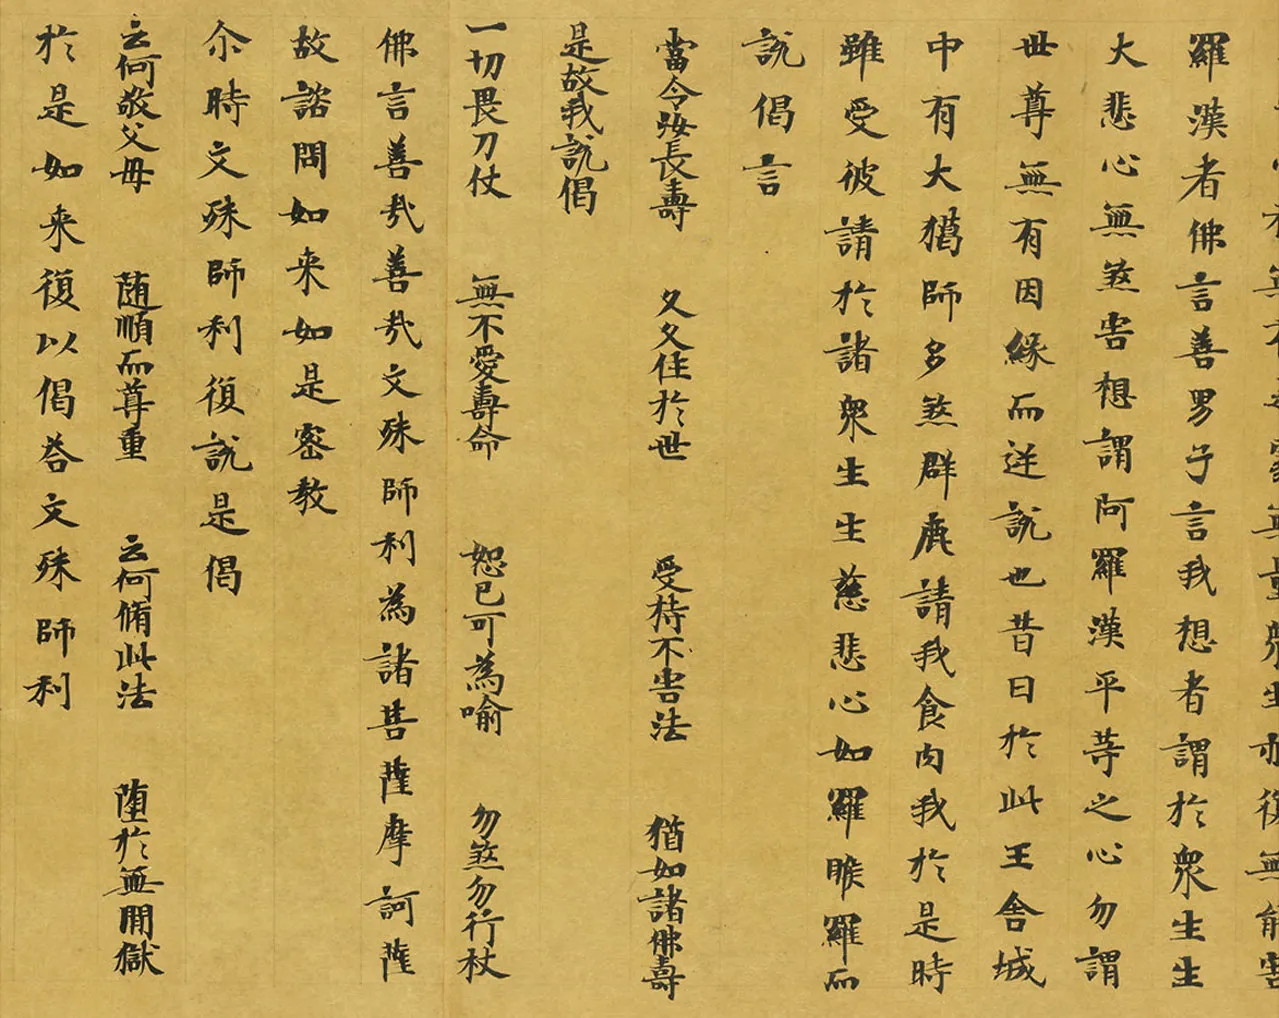 無量衆生亦復無能害
羅漢者佛言善男子言我想者謂於衆生生
大悲心無煞害想謂阿羅漢平等之心勿謂
世尊無有因緣而逆說也昔日於此王舍城
中有大獦師多煞群鹿請我食肉我於是時
雖受彼請於諸衆生生慈悲心如羅睺羅而
說偈言
當令汝長壽　久久住於世　受持不害法　猶如諸佛壽
是故我說偈
一切畏刀杖　無不愛壽命　恕己可為喻　勿煞勿行杖
佛言善哉善哉文殊師利為諸菩薩摩訶薩
故諮問如来如是密教
尒時文殊師利復說是偈
云何敬父母　随順而尊重　云何脩此法　堕於無間獄
於是如来復以偈荅文殊師利